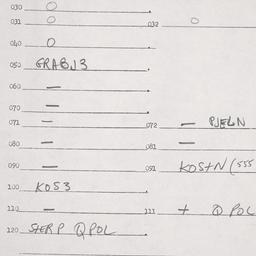 030 O
031 O 032 O
040 O
050 GRABUS
060 —
070 —
071 — 072 — PJELN
080 — 081 —
090 — 091 KOSTN (555
100 KOS3
110 — 111 + Q POL
120 STERP QPOL